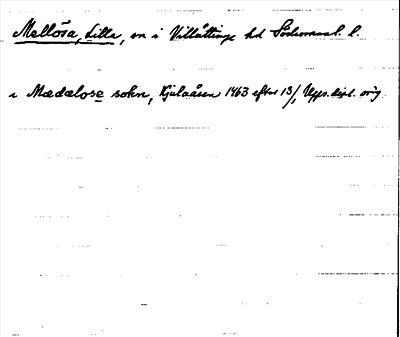 Mellösa, Lilla, sn i Villåttinge hd Södermanl. l.
i Mædælose sokn, Kjulaåsen 1463 efter 13/1, Upps. dipl. orig.